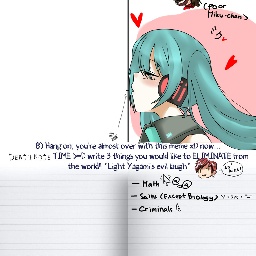 (POOR
Miku-chan)
ミク
8) Hang on, you're almost over with this meme xD now...
DEATH NOTE TIME >=D write 3 things you would like to ELIMINATE from
the world! *Light Yagami's evil laugh*
- Math
- (Except Biology)
- Criminals